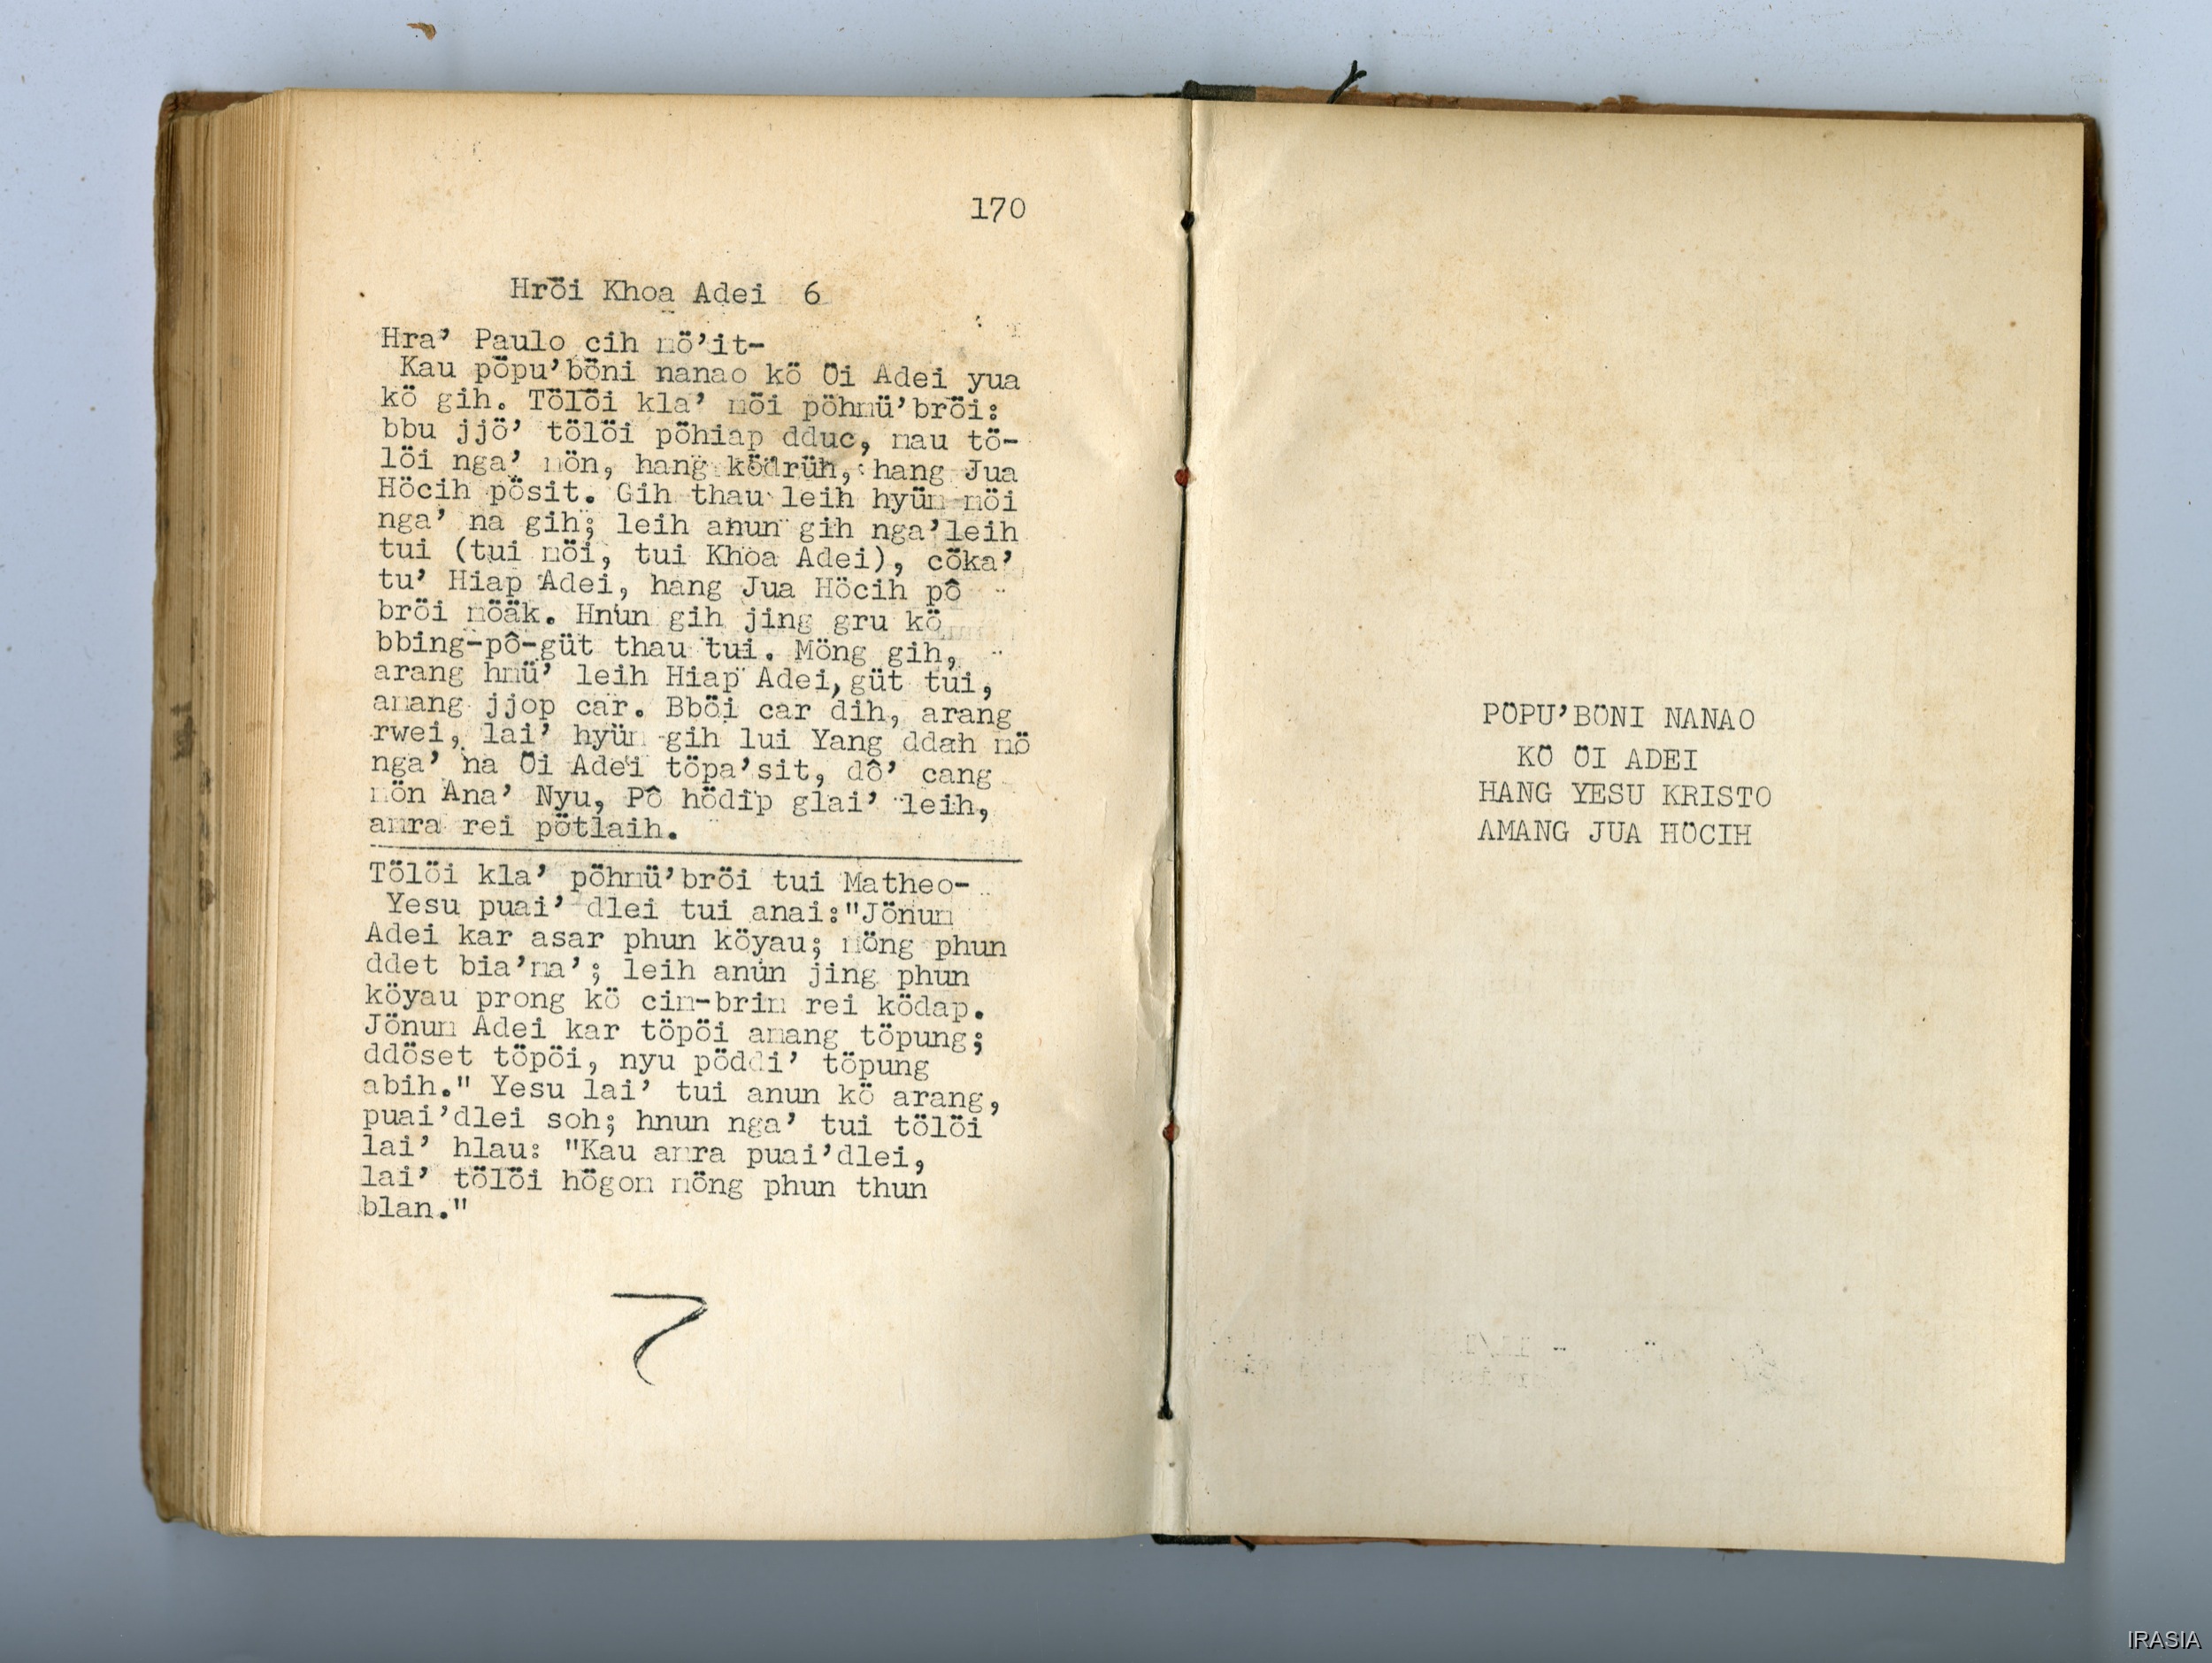 170
Hröi Khoa Adei 6
Hra’ Paulo cih mö’it-
Kau pöpu’böni nanao kö Öi Adei yua
kö gih. Tölöi kla’ möi pöhmü’bröi:
bbu jjö’ tölöi pöhiap dduc, mau tö-
löi nga’ mön, hang ködrüh, hang Jua
Höcih pösit. Gih thau leih hyüm möi
nga’ na gih; leih anun gih nga’leih
tui (tui möi, tui Khoa Adei), cöka’
tu’ Hiap Adei, hang Jua Höcih pô
bröi möäk. Hnun gih jing gru kö
bbing-pô-güt thau tui. Möng gih,
arang hmü’ leih Hiap Adei, güt tui,
amang jjop car. Bböi car dih, arang
rwei, lai’ hyüm gih lui Yang ddah mö
nga’ na Öi Adei töpa’sit, dô’ cang
mön Ana’ Nyu, Pô hödip glai’ leih,
amra rei pötlaih.
Tölöi kla’ pöhmü’bröi tui Matheo-
Yesu puai’ dlei tui anai:"Jönum
Adei kar asar phun köyau; möng phun
ddet bia’ma’; leih anun jing phun
köyau prong kö cim-brim rei ködap.
Jönum Adei kar töpöi amang töpung;
ddöset töpöi, nyu pöddi’ töpung
abih." Yesu lai’ tui anun kö arang,
puai’dlei soh; hnun nga’ tui tölöi
lai’ hlau: "Kau amra puai’dlei,
lai’ tölöi högom möng phun thun
blan."
PÖPU’BÖNI NANAO
KÖ ÖI ADEI
HANG YESU KRISTO
AMANG JUA HÖCIH
IRASIA